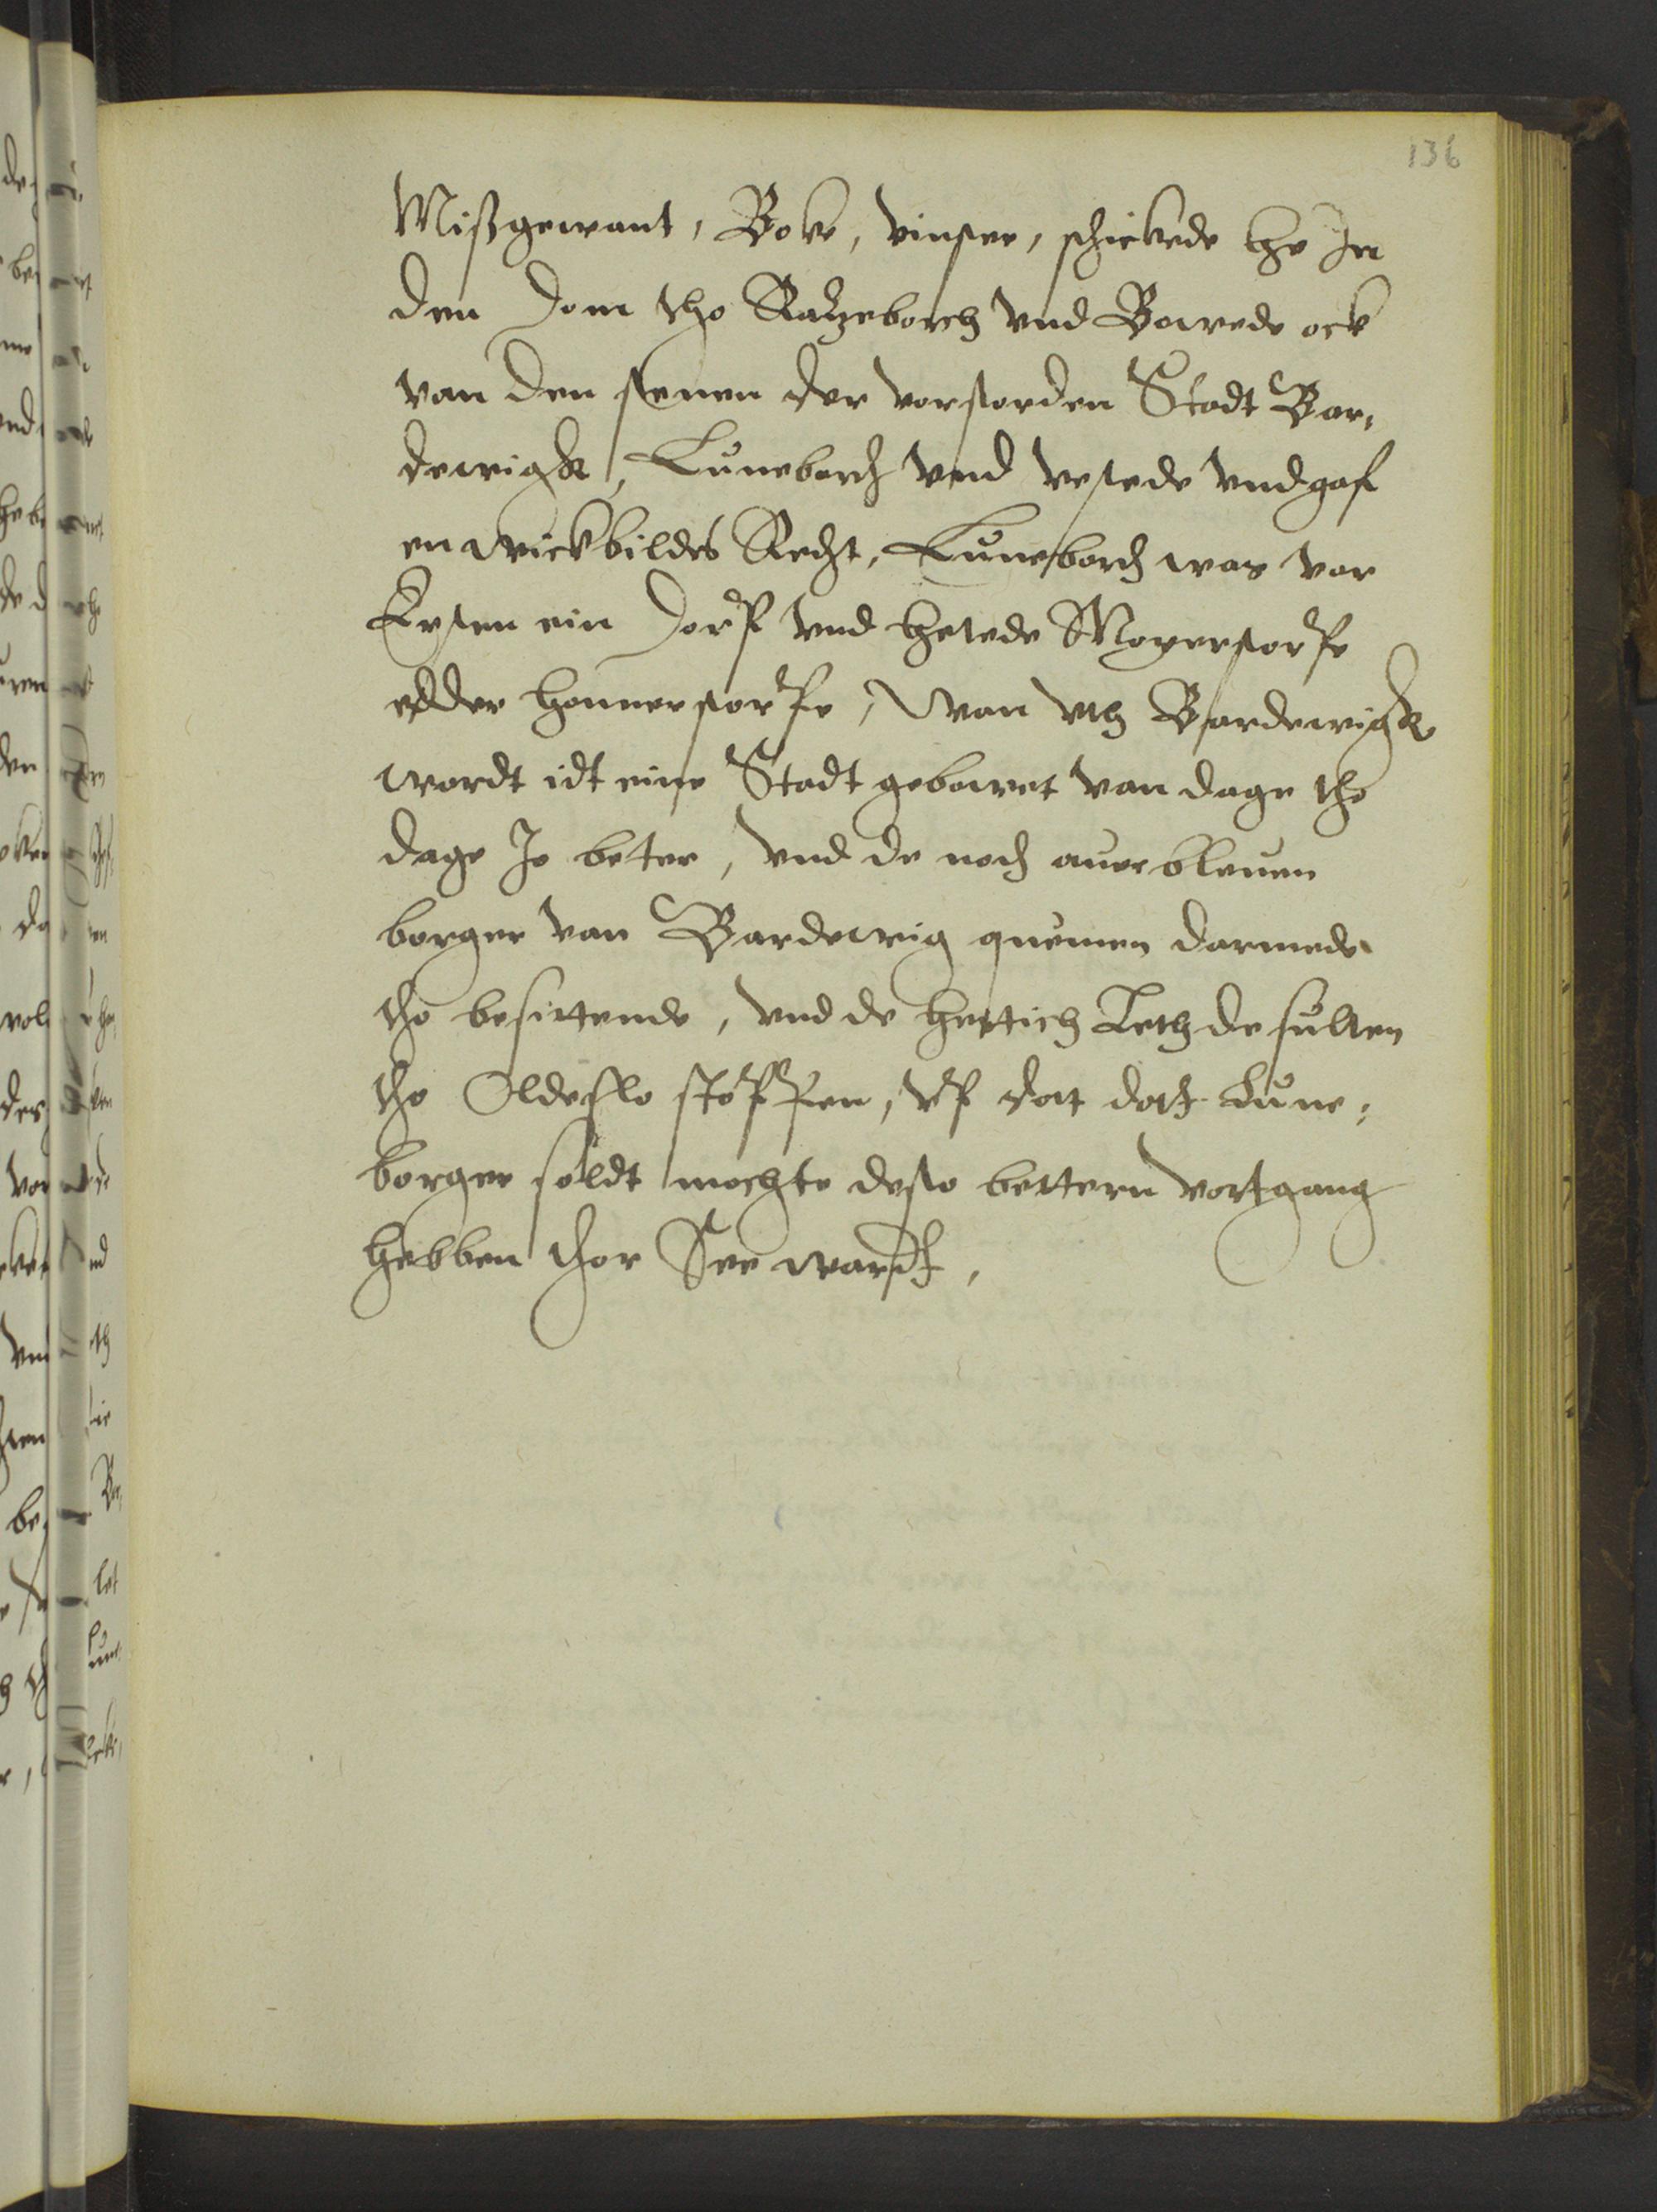 136
Mißgewant, Boke, vinster, schickede he In
den Dom tho Ratzeborch vnd Bowede ock
van den stenen der vorstorden Stadt Bar,
dewigk, Luneborch vnd vestede vnd gaf
en wickbildes Recht, Luneborch was vor
Ersten ein Dorp vnd hetede Meyerstorpe
edder honnerstorpe, Wan vth Bardewigk
wordt idt eine Stadt gebowet van dage tho
dage Je beter, vnd de noch auerbleuen
borger van Bardewig quemen darmede
tho besittende, vnd de hertich Leth de sulten
tho Oldeslo stoppen, vp dat dath Lune,
borger soldt mochte desto bettern vortgang
hebben thor See wardt,